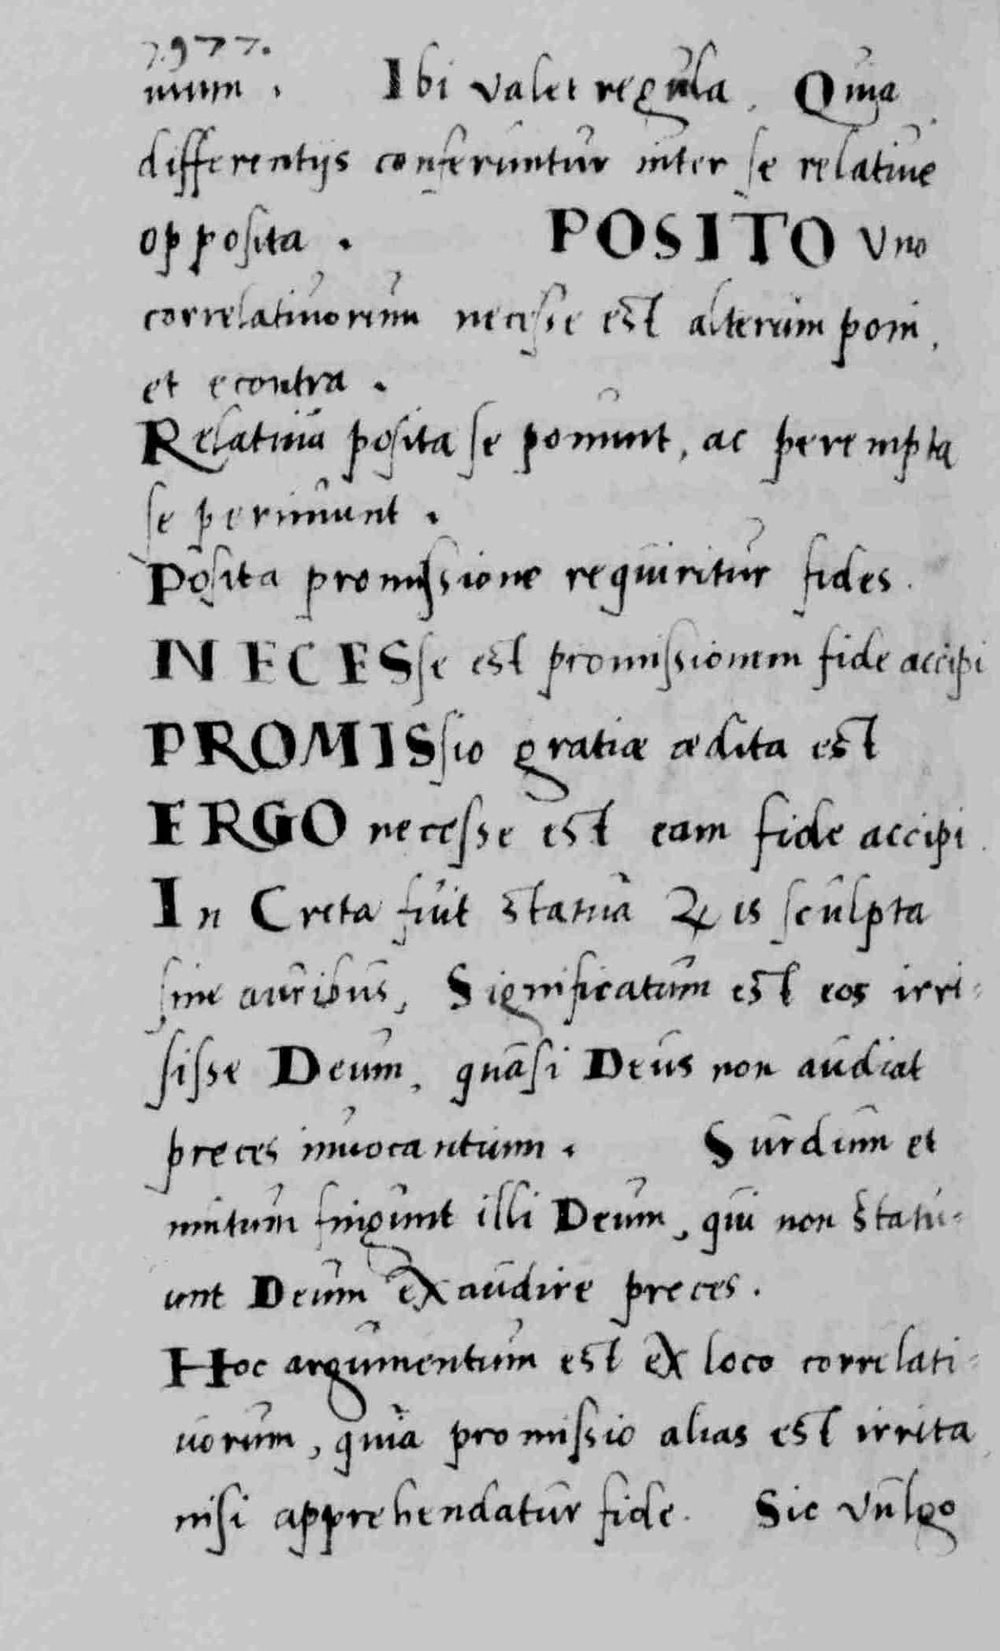 7.977.
mum. Ibi valet regula. Quia
differentijs conferuntur inter se relatiue
opposita. POSITO Vno
correlatiuorum necesse est alterum poni,
et econtra.
Relatiua posita se ponunt, ac perempta
se perimunt.
Posita promissione requiritur fides.
NECESse est promissionem fide accipi
PROMISsio gratiæ ædita est
ERGO necesse est eam fide accipi.
In Creta fuit statua ♃is sculpta
sine auribus, Significatum est eos irri-
sisse Deum, quasi Deus non audiat
preces inuocantium. Surdum et
mutum fingunt illi Deum, qui non statu-
unt Deum exaudire preces.
Hoc argumentum est ex loco correlati-
uorum, quia promissio alias est irrita
nisi apprehendatur fide. Sic vulgo